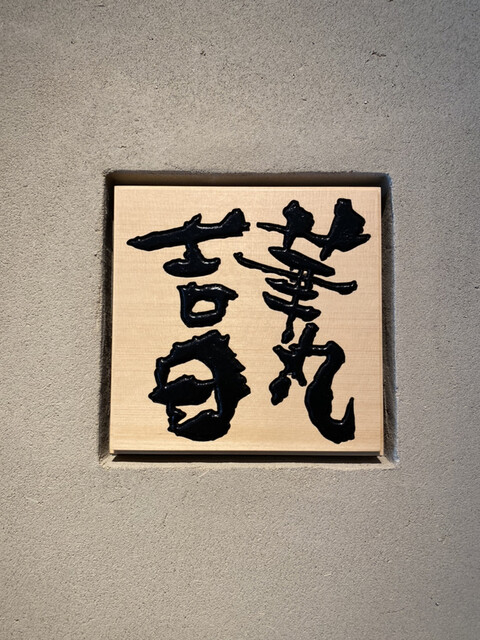 華丸
吉日